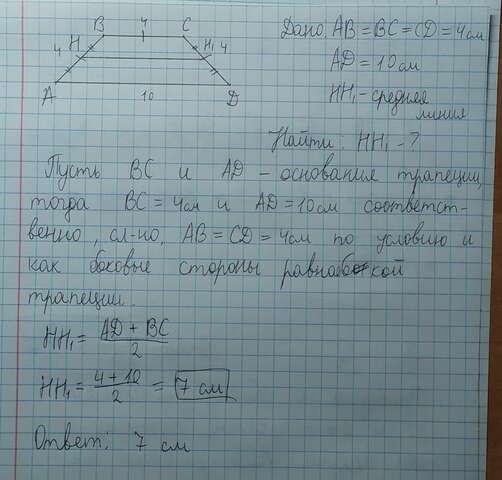 B 4 C
4 H H₁ 4
A 10 D
Дано: AB = BC = CD = 4см
AD = 10см
HH₁ - средняя
линия
Найти: HH₁ - ?
Пусть BC и AD - основания трапеции,
тогда BC = 4см и AD = 10см соответст-
венно, сл-но, AB = CD = 4см по условию и
как боковые стороны равнобокой
трапеции.
HH₁ = AD + BC / 2
HH₁ = 4 + 10 / 2 = 7 см
Ответ: 7 см